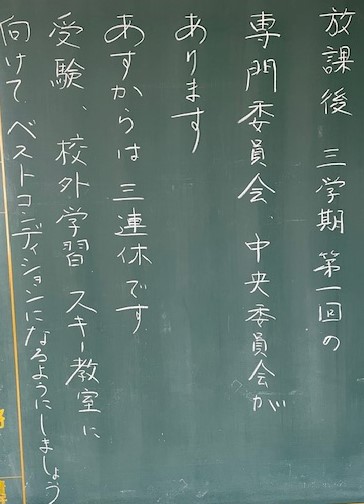 放課後 三学期 第一回の
専門委員会、中央委員会が
あります
あすからは 三連休です
受験、校外学習 スキー教室に
向けて ベストコンディションになるようにしましょう